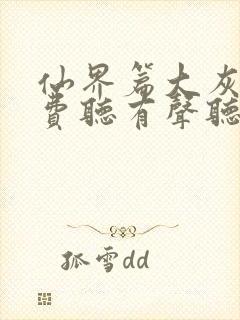 仙界篇大灰
費聽有聲聽
孤雪dd